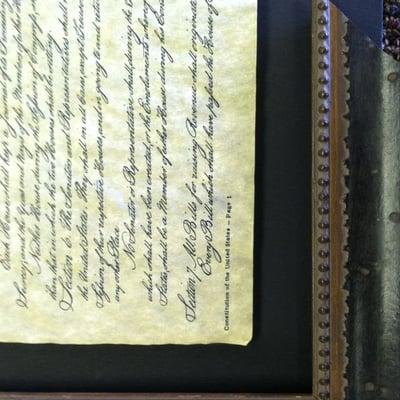 Each House shall keep a
Journal, and the Yeas and Nays of the Members of
Neither House, during the Session of Congress,
than that in which the two Houses shall be sitting.
Section 6. The Senators and Representatives shall
the United States. They shall in all Cases, except Treason
Session of their respective Houses, and in going to and
any other Place.
No Senator or Representative shall, during the
which shall have been created, or the Emoluments
States, shall be a Member of either House during his
Section 7. All Bills for raising Revenue shall originate
Every Bill which shall have passed the House of
Constitution of the United States – Page 1